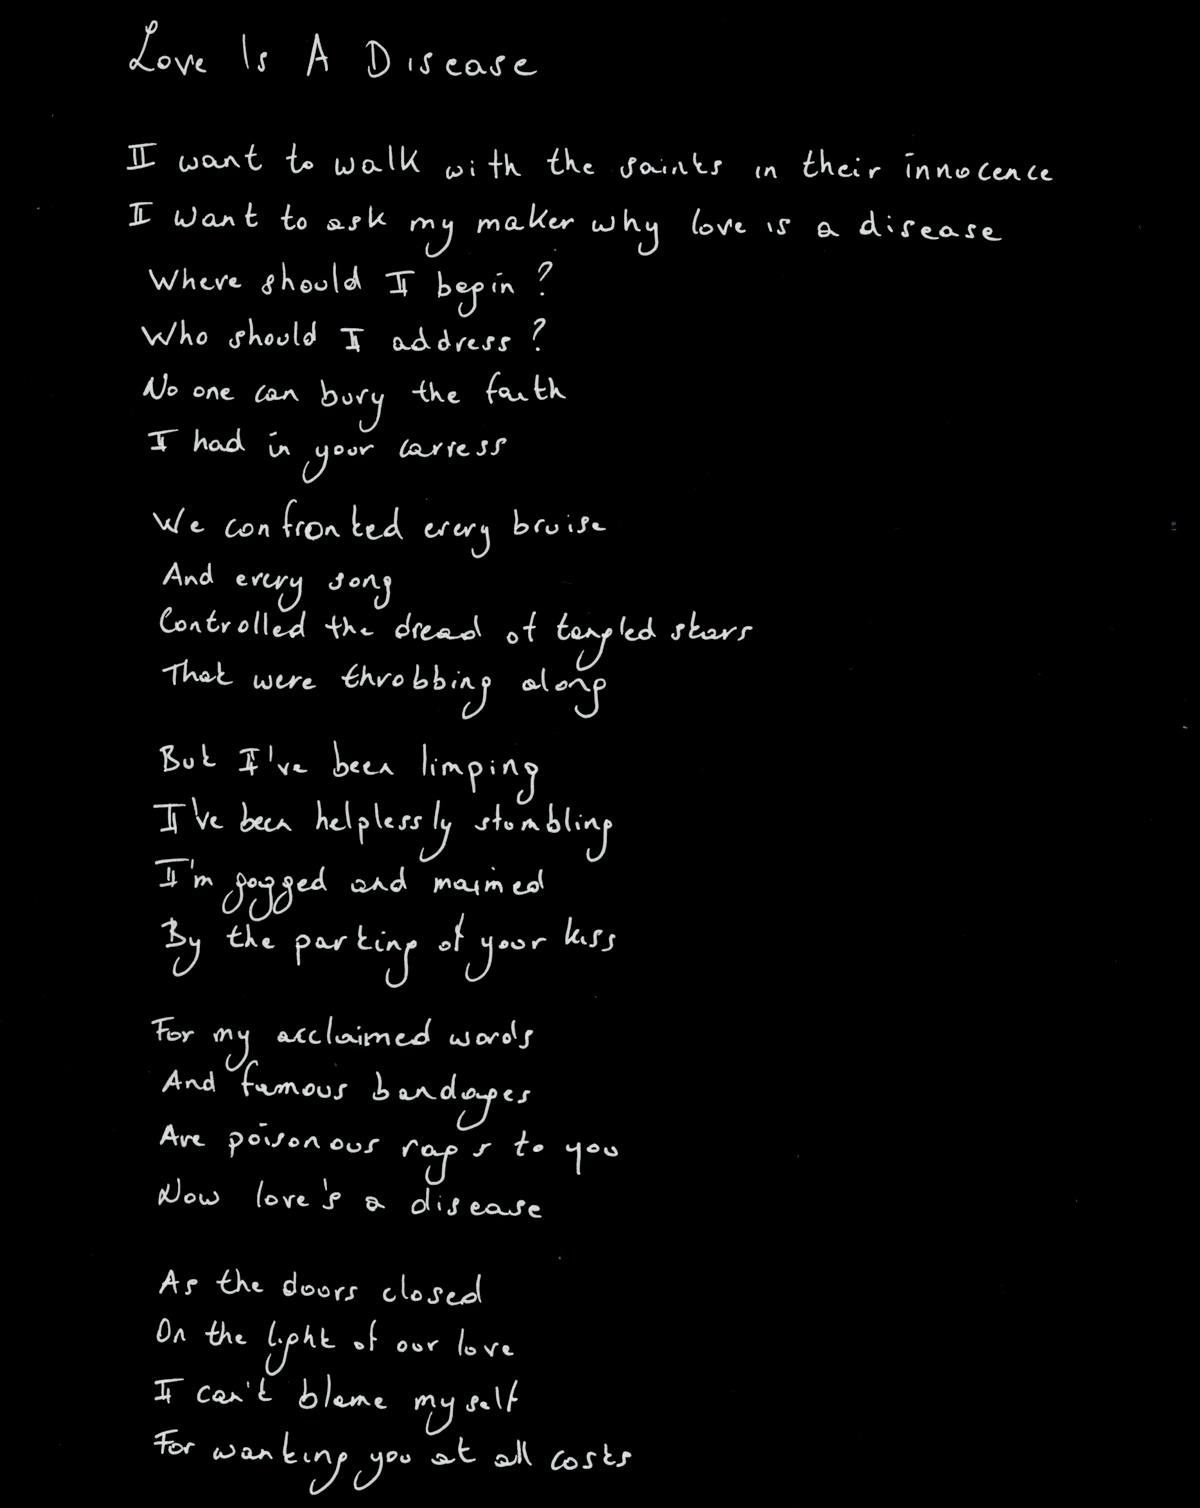 Love Is A Disease
I want to walk with the saints in their innocence
I want to ask my maker why love is a disease
Where should I begin?
Who should I address?
No one can bury the faith
I had in your carress
We confronted every bruise
And every song
Controlled the dread of tangled stars
That were throbbing along
But I've been limping
I've been helplessly stumbling
I'm gagged and maimed
By the parting of your kiss
For my acclaimed words
And famous bandages
Are poisonous rags to you
Now love's a disease
As the doors closed
On the light of our love
I can't blame myself
For wanting you at all costs